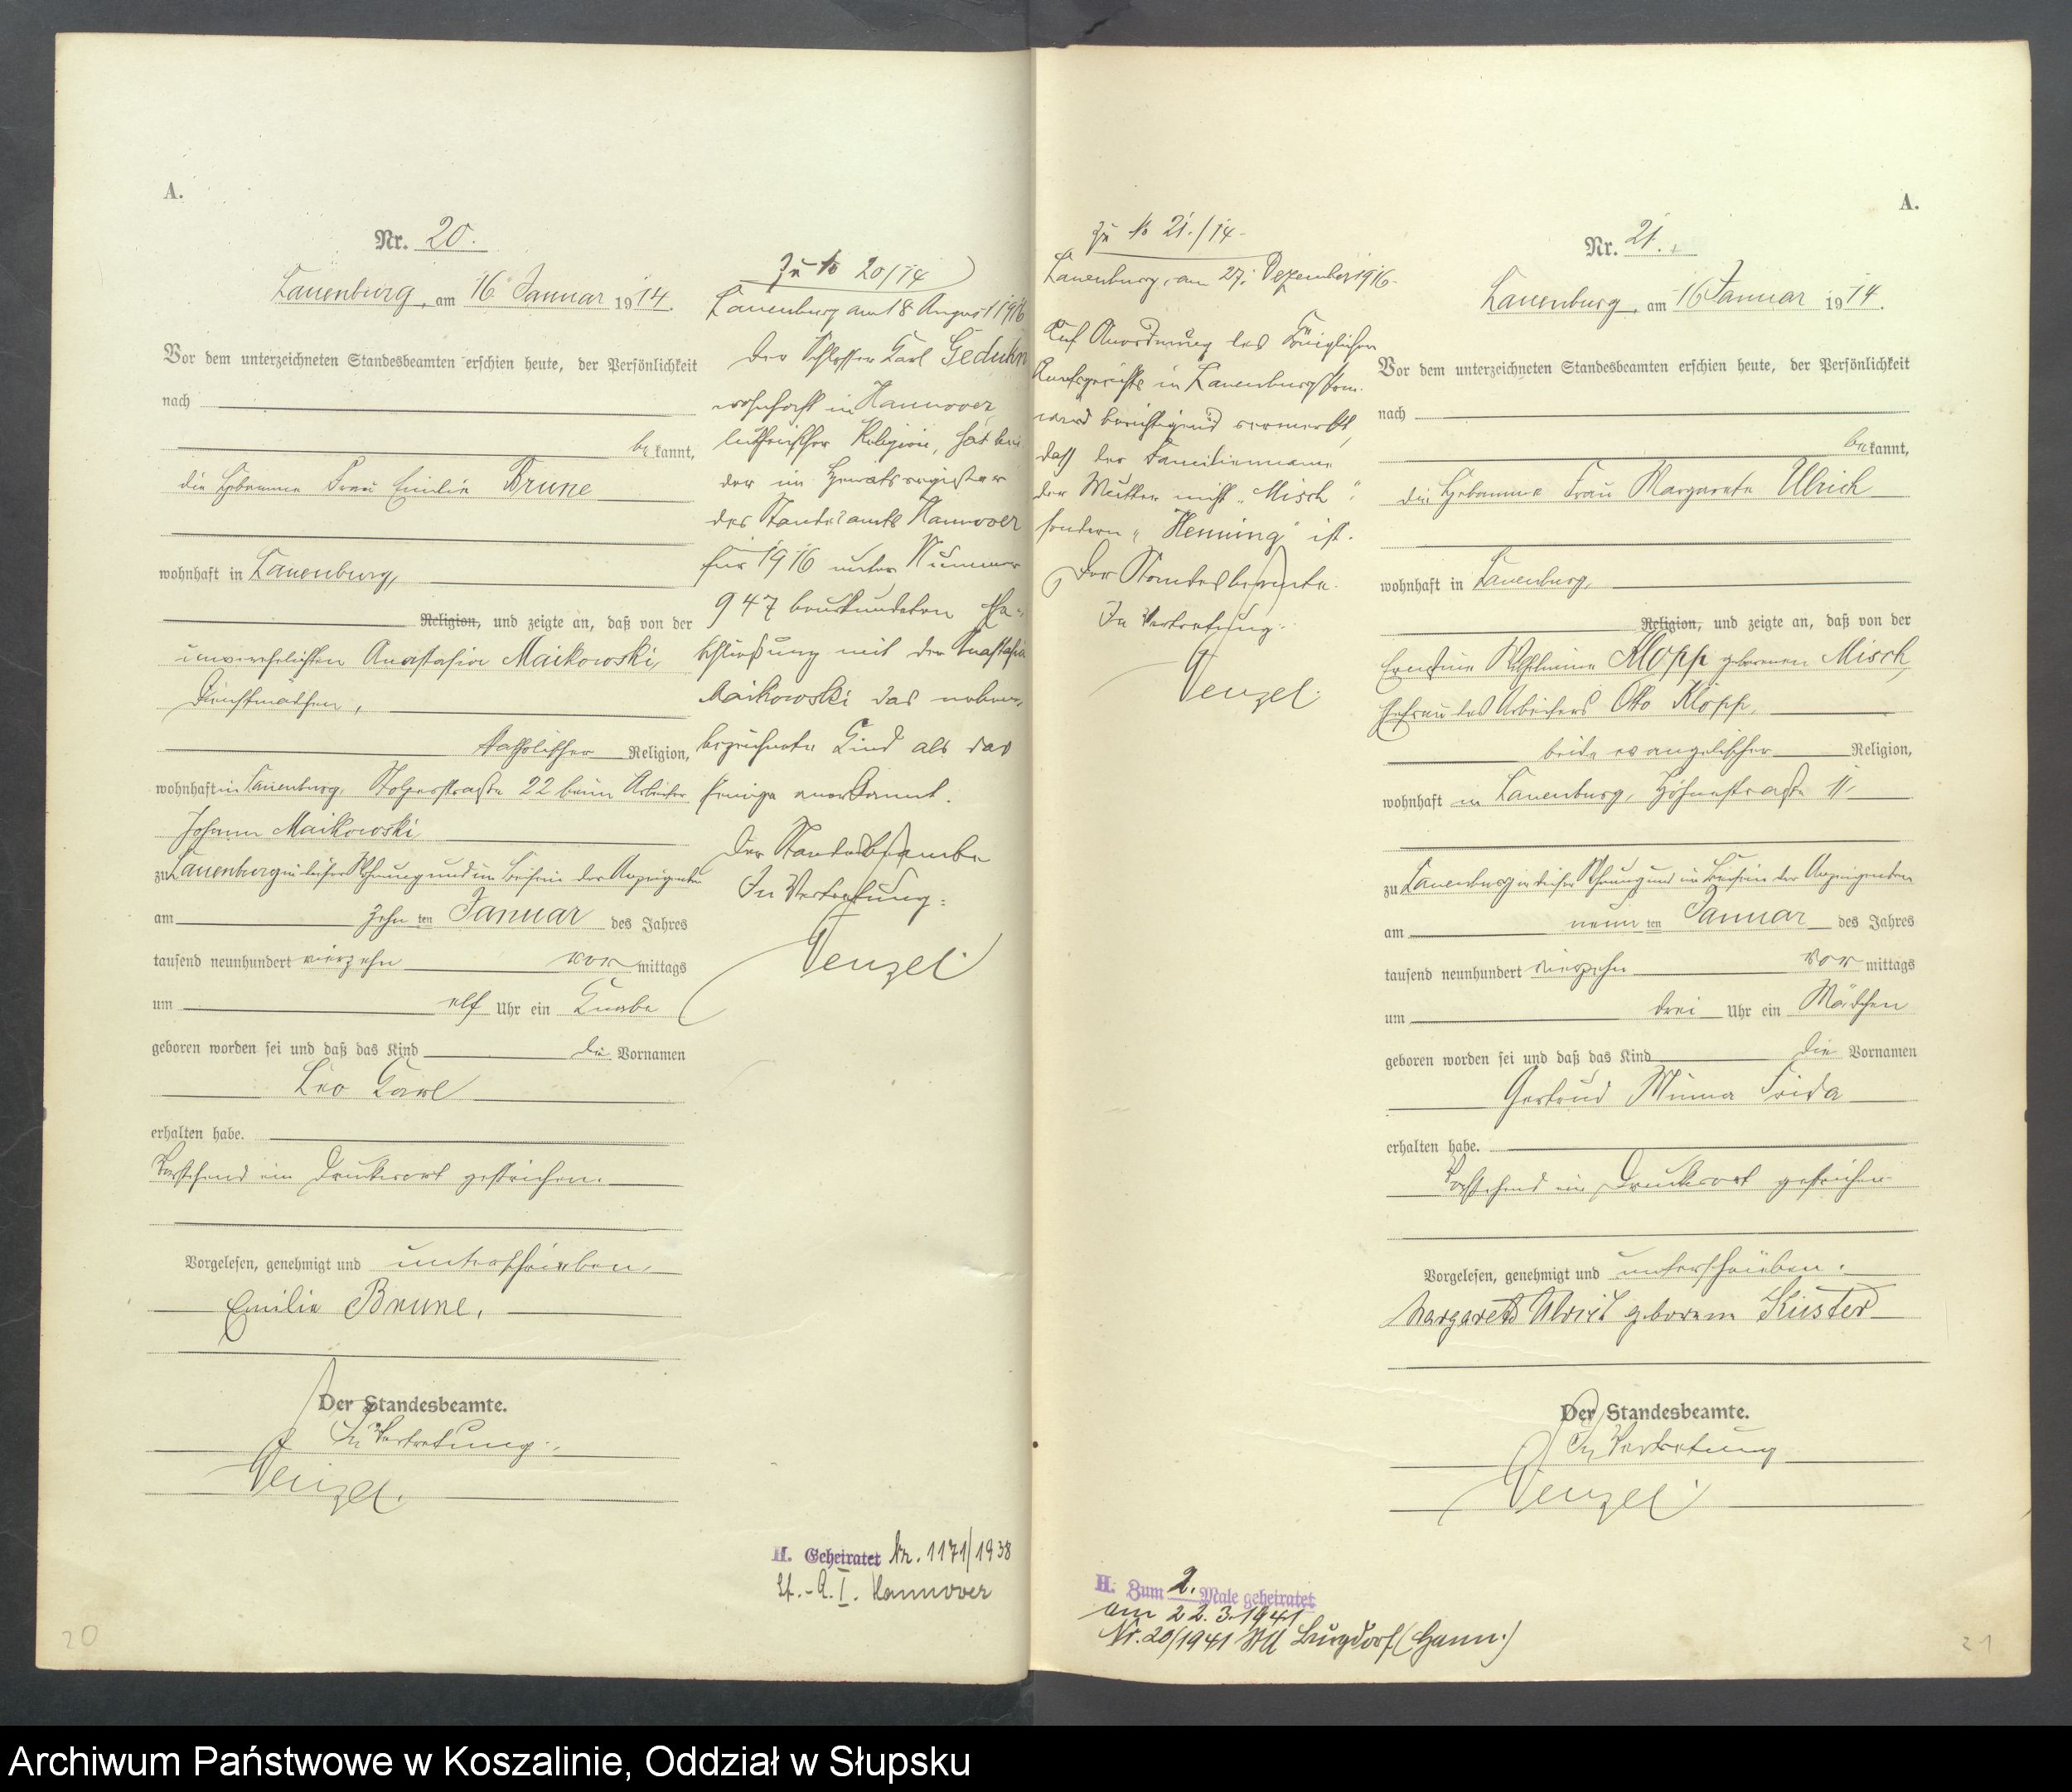 A.
Nr. 20.
Lauenburg, am 16. Januar 1914.
Vor dem unterzeichneten Standesbeamten erschien heute, der Persönlichkeit
nach
bekannt,
die Hebamme Frau Emilie Brune
wohnhaft in Lauenburg,
Religion, und zeigte an, daß von der
unverehelichten Anastasia Maikowski,
Dienstmädchen,
katholischer Religion,
wohnhaft in Lauenburg, Stolperstraße 22 beim Arbeiter
Johann Maikowski
zu Lauenburg in dieser Wohnung und im Beisein der Anzeigenden
am zehnten Januar des Jahres
tausend neunhundert vierzehn vormittags
um elf Uhr ein Knabe
geboren worden sei und daß das Kind die Vornamen
Leo Karl
erhalten habe.
Vorstehend ein Druckwort gestrichen.
Vorgelesen, genehmigt und unterschrieben.
Emilie Brune.
Der Standesbeamte.
In Vertretung:
Wenzel.
Zu No 20/14
Lauenburg am 18 August 1916
Der Schlosser Karl Geduhn
wohnhaft in Hannover,
lutherischer Religion, hat bei
der im Heiratsregister
des Standesamts Hannover
für 1916 unter Nummer
947 beurkundeten Ehe-
schließung mit der Anastasia
Maikowski das neben-
bezeichnete Kind als das
seinige anerkannt.
Der Standesbeamte
In Vertretung:
Wenzel
H. Geheiratet Nr. 1171/1938
St.-A. I. Hannover
20
Zu No 21./14.
Lauenburg, am 27. Dezember 1916.
Auf Anordnung des Königlichen
Amtsgerichts in Lauenburg Pom.
wird berichtigend vermerkt,
daß der Familienname
der Mutter nicht „Misch"
sondern „Henning" ist.
Der Standesbeamte.
In Vertretung:
Wenzel.
H. Zum 2. Male geheiratet
am 22.3.1941
Nr. 20/1941 StA Burgdorf (Hann.)
A.
Nr. 21.
Lauenburg, am 16 Januar 1914.
Vor dem unterzeichneten Standesbeamten erschien heute, der Persönlichkeit
nach
bekannt,
die Hebamme Frau Margarete Ulrich
wohnhaft in Lauenburg,
Religion, und zeigte an, daß von der
Ernstine Wilhelmine Klopp geborenen Misch,
Ehefrau des Arbeiters Otto Klopp,
beide evangelischer Religion,
wohnhaft in Lauenburg, Höhnestraße 11,
zu Lauenburg in dieser Wohnung und im Beisein der Anzeigenden
am neunten Januar des Jahres
tausend neunhundert vierzehn vormittags
um drei Uhr ein Mädchen
geboren worden sei und daß das Kind die Vornamen
Gertrud Minna Frida
erhalten habe.
Vorstehend ein Druckwort gestrichen
Vorgelesen, genehmigt und unterschrieben.
Margarete Ulrich geborene Küster
Der Standesbeamte.
In Vertretung
Wenzel
21
Archiwum Państwowe w Koszalinie, Oddział w Słupsku